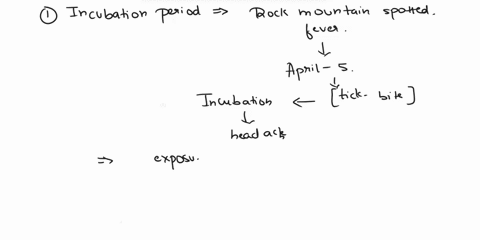 ① Incubation period ⇒ Rock mountain spotted.
fever.
↓
April - 5.
↓
Incubation ← [tick - bite]
↓
headack
⇒ exposu.